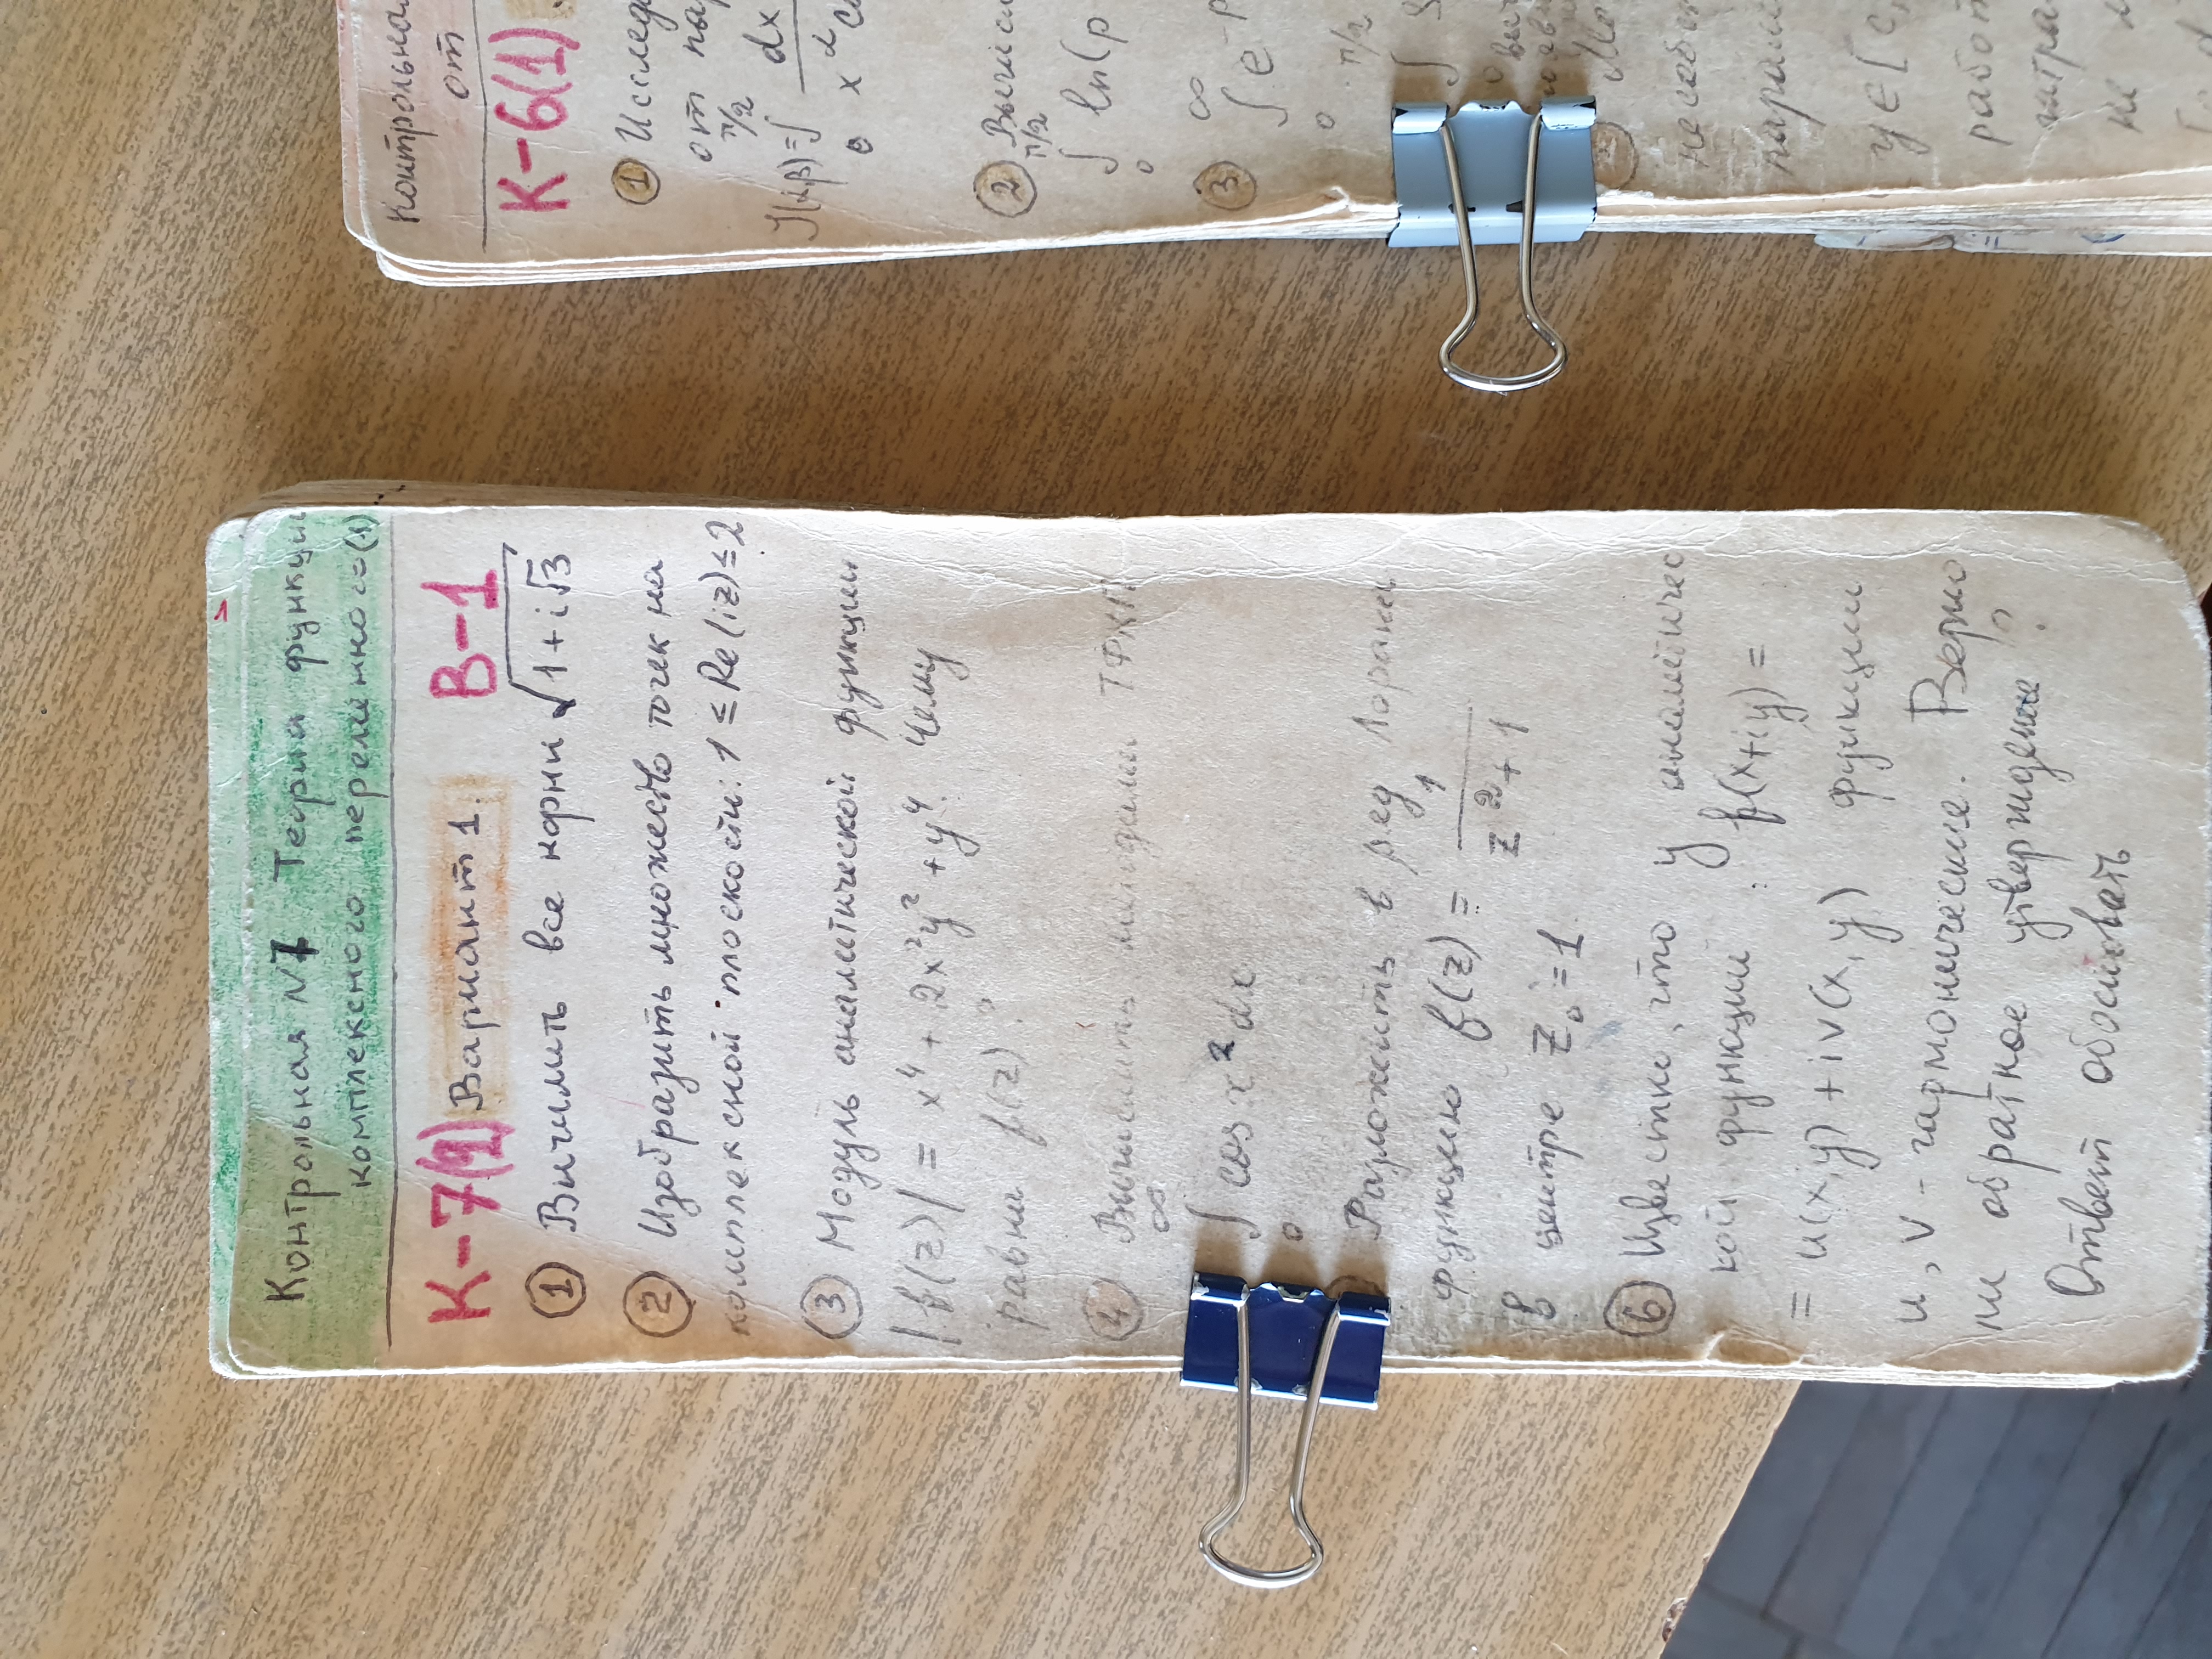 Контрольная N7 Теория функции
комплексного переменного (1)
К-7(1) Вариант 1. В-1
① Вычислить все корни √1+i√3
② Изобразить множество точек на
комплексной плоскости: 1 ≤ Re(iz) ≤ 2
③ Модуль аналитической функции
|f(z)| = x⁴ + 2x²y² + y⁴. Чему
равны f(z)?
④ Вычислить методами ТФКП
∞
∫ cos x² dx
0
Разложить в ряд Лорана
функцию f(z) = 1
z²+1
в центре z₀=1
⑥ Известно, что у аналитичес
кой функции: f(x+iy) =
= u(x,y) + iv(x,y) функции
u, v - гармонические. Верно
ли обратное утверждение?
Ответ обосновать
Контрольна
от
К-6(1)
① Исслед
от пар
π/2
J(α,β)=∫ dx
0 x^α co
② Вычисл
π/2
∫ ln(p
0
③ ∞
∫ e^-p
0
π/2
∫
0
y ∈ [c,
работ
не